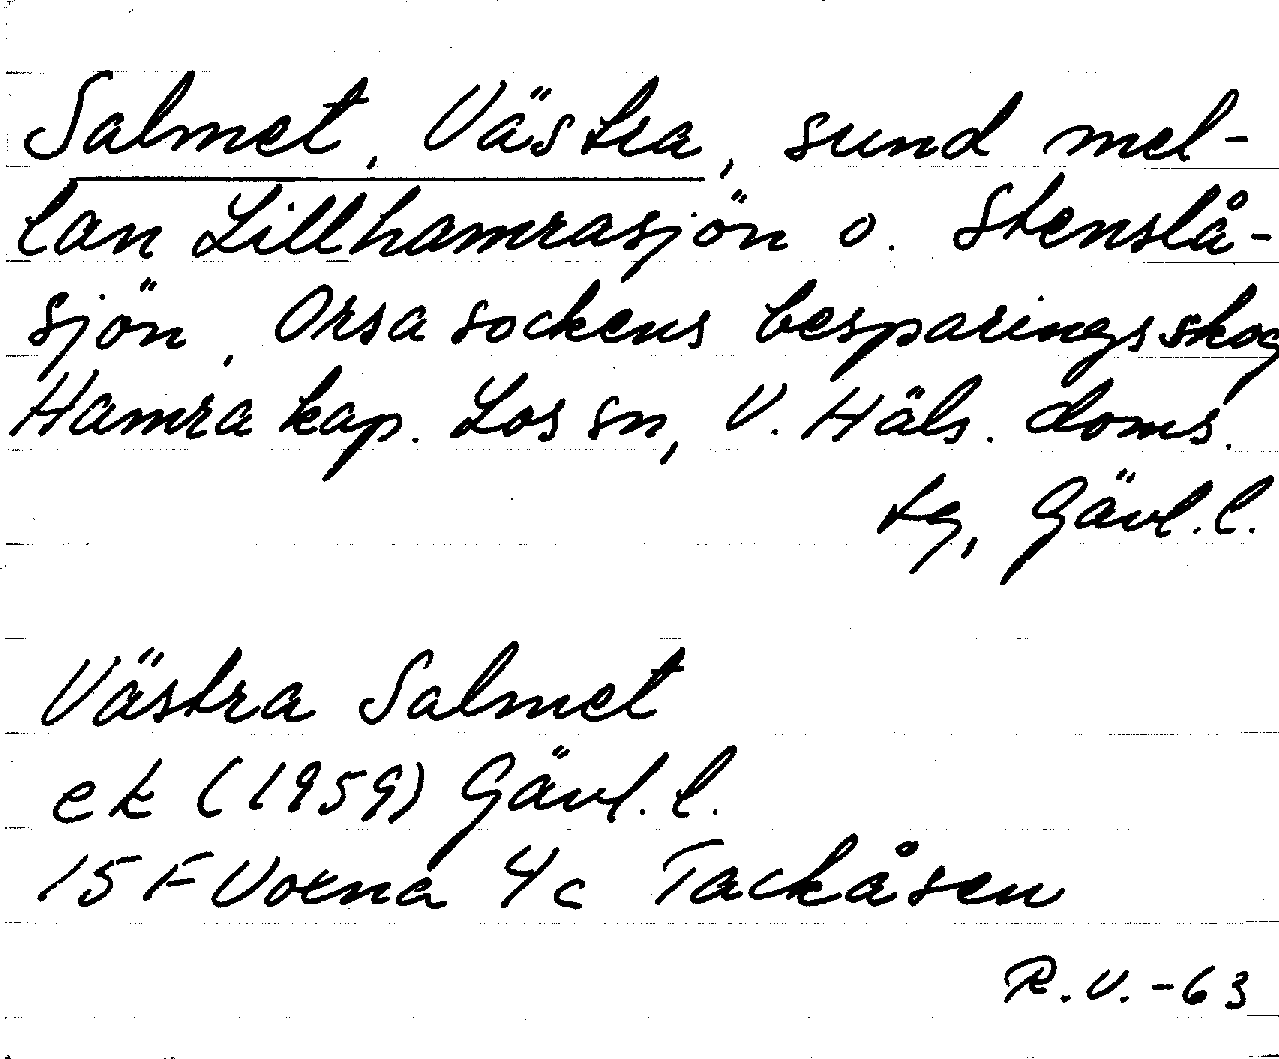 Salmet, Västra, sund mel-
lan Lillhamrasjön o. Stenslå-
sjön, Orsa sockens besparingsskog
Hamra kap. Los sn, V. Häls. doms.
tg, Gävl. l.
Västra Salmet
ek (1959) Gävl. l.
15 F Voxna 4c Tackåsen
R.V. -63